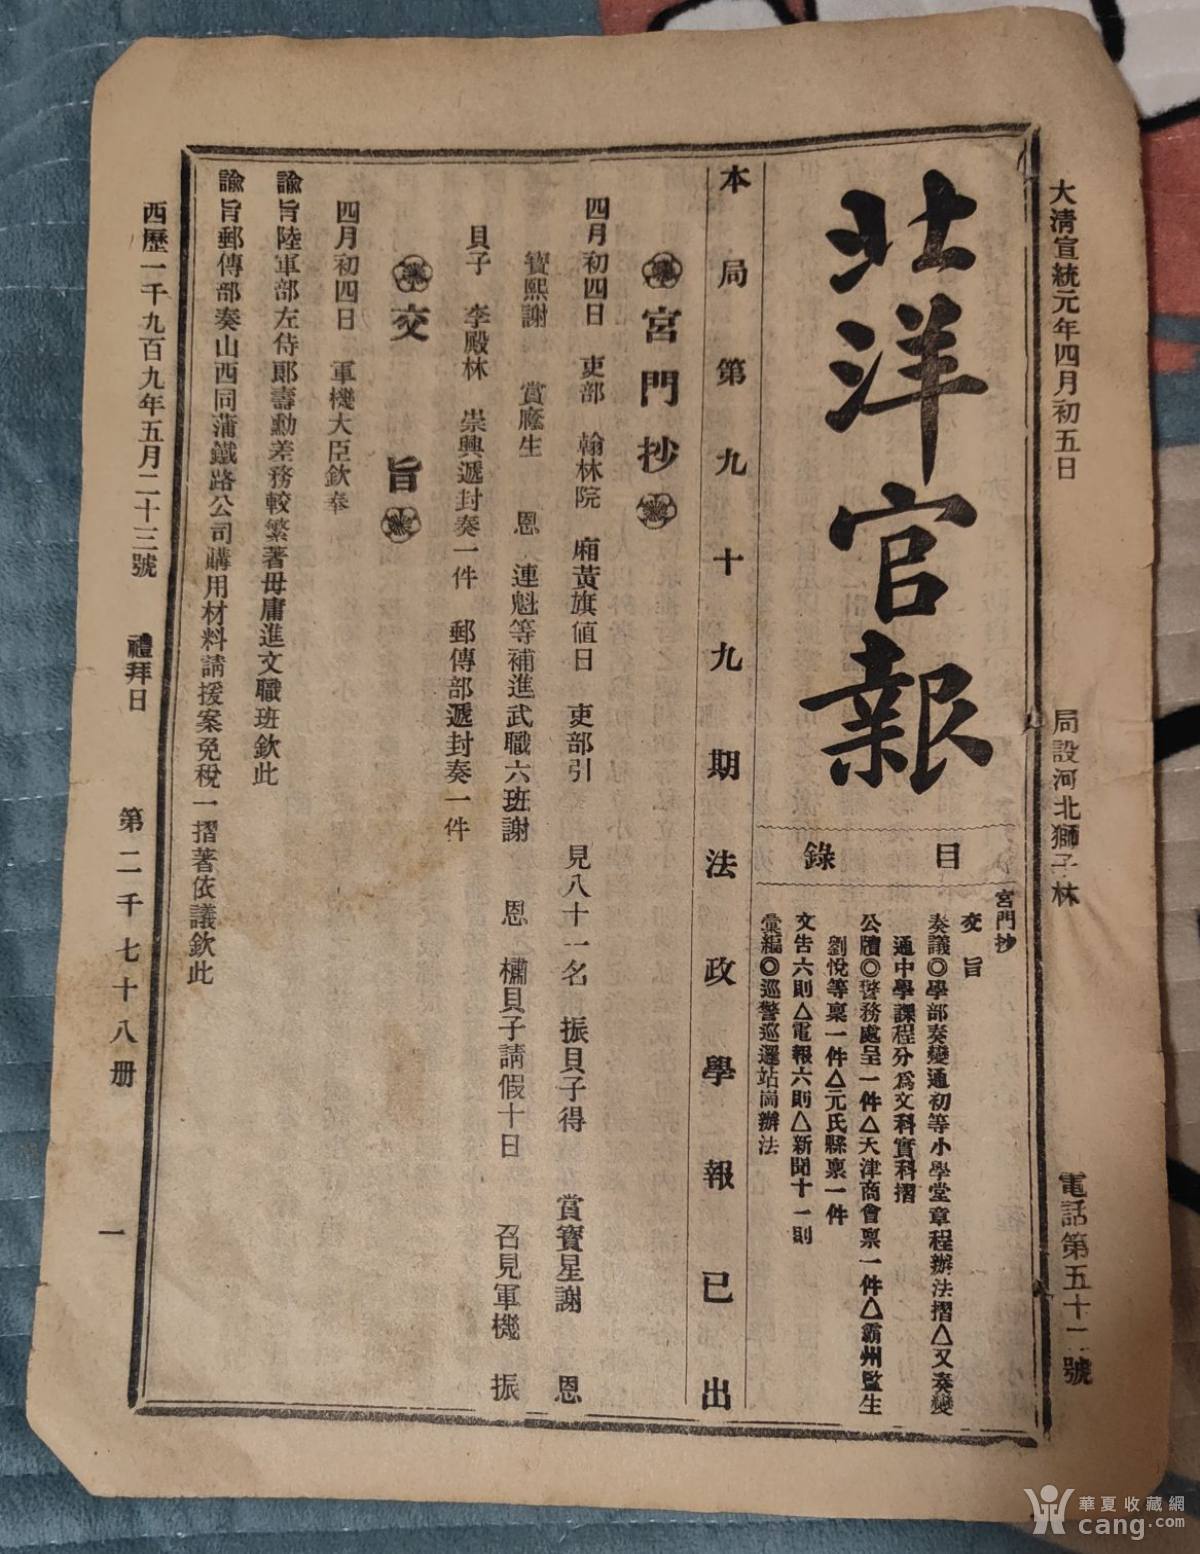 大清宣統元年四月初五日
局設河北獅子林
電話第五十二號
北洋官報
目錄
宮門抄
交旨
奏議◎學部奏變通初等小學堂章程辦法摺△又奏變
通中學課程分為文科實科摺
公牘◎警務處呈一件△天津商會稟一件△霸州監生
劉悅等稟一件△元氏縣稟一件
文告六則△電報六則△新聞十一則
彙編◎巡警巡邏站崗辦法
本局第九十九期法政學報已出
宮門抄
四月初四日 吏部 翰林院 廂黃旗値日 吏部引 見八十一名 振貝子得 賞寶星謝 恩
寶熙謝 賞廕生 恩 連魁等補進武職六班謝 恩 橚貝子請假十日 召見軍機 振
貝子 李殿林 崇興遞封奏一件 郵傳部遞封奏一件
交旨
四月初四日 軍機大臣欽奉
諭旨陸軍部左侍郞壽勳差務較繁著毋庸進文職班欽此
諭旨郵傳部奏山西同蒲鐵路公司購用材料請援案免稅一摺著依議欽此
西歷一千九百九年五月二十三號
禮拜日
第二千七十八册
一
華夏收藏網
cang.com